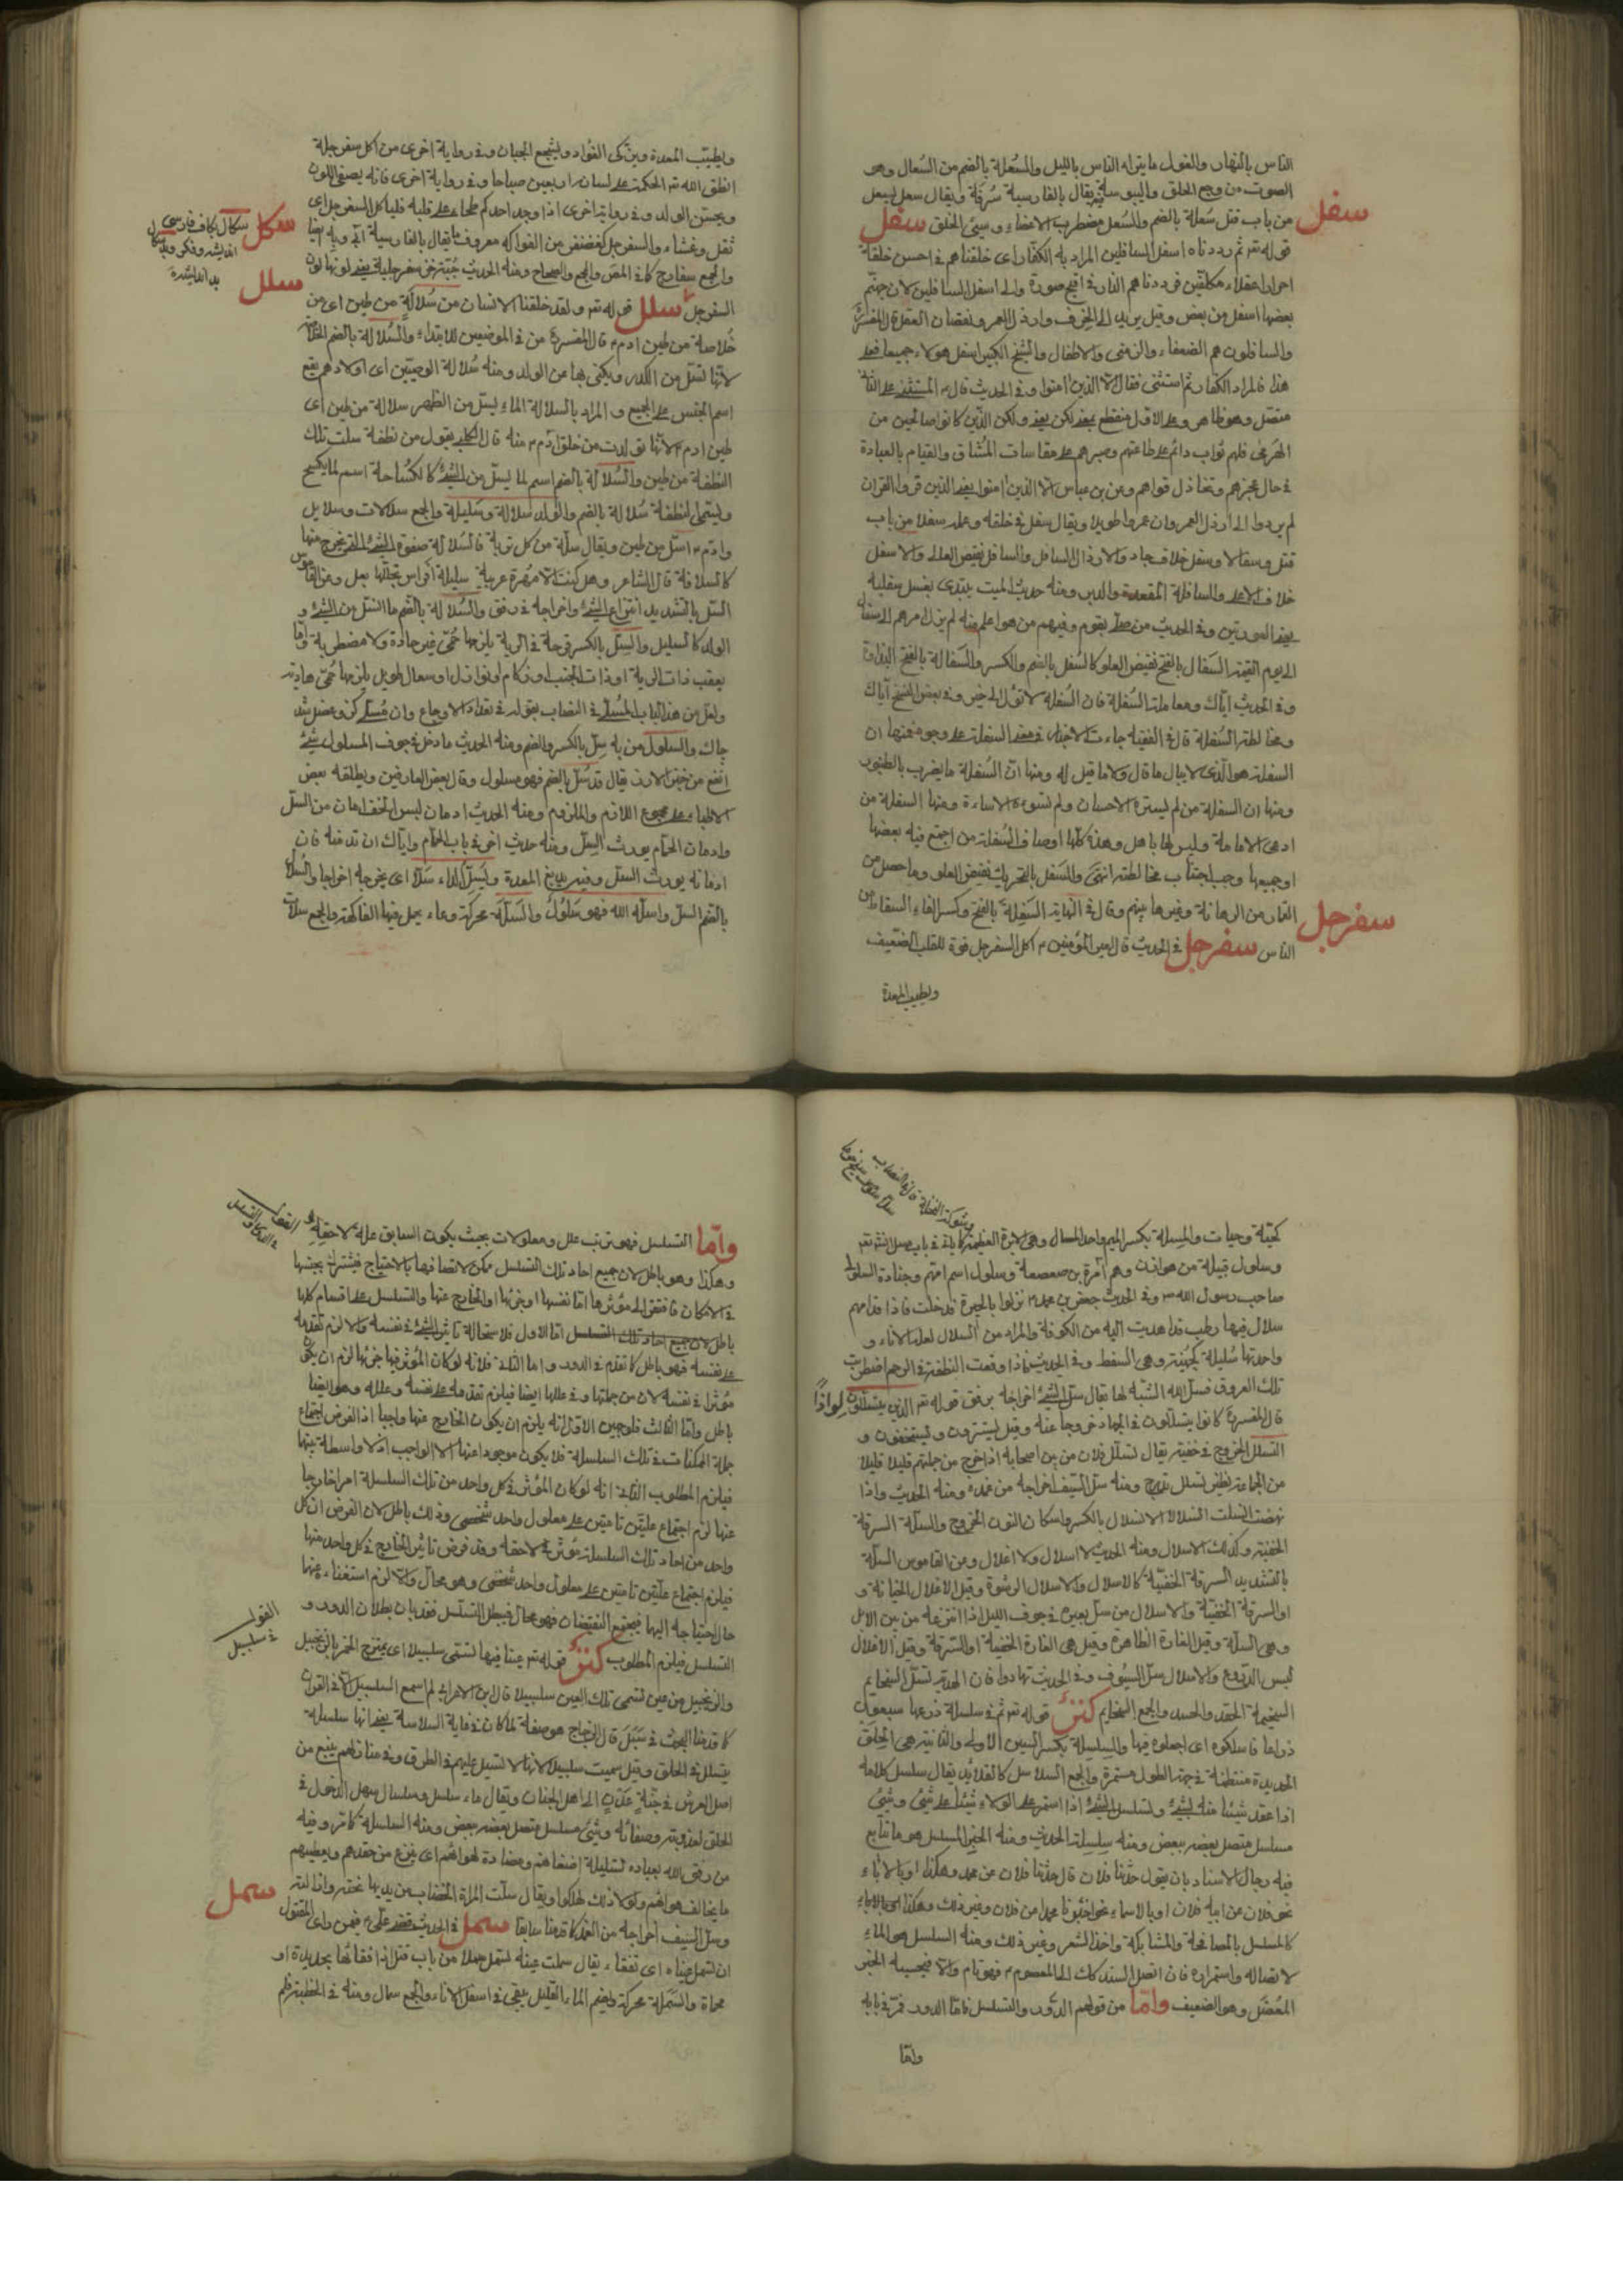 الناس بالنهار والغول ما يتراه الناس بالليل والسُّعلة بالضم من السُعال وهو
الصوت من وجع الحلق واليبوسة يقال بالفارسية سُرفة ويقال سعل يسعل
من باب قتل سُعلة بالضم والسُعل مضطرب الاعضاء وسيئ الخلق سفل
سفل
قوله تعه ثم رددناه اسفل السافلين المراد به الكفار اى خلقناهم فى احسن خلقة
احرارا عقلاء مكلفين فرددناهم النار فى اقبح صورة والى اسفل السافلين لان جهنم
بعضها اسفل من بعض وقيل يريد الى الخرف وارذل العمر ونقصان العقل
والسافلون هم الضعفاء والزمنى والاطفال والشيخ الكبير اسفل هولاء جميعا فعلى
هذا فالمراد الكفار ثم استثنى فقال الا الذين امنوا وفى الحديث قال المستثنى على الثانى
متصل وهو ظاهر وعلى الاول منقطع بمعنى لكن يعنى ولكن الذين كانوا صالحين من
الهرمى فلهم ثواب دائم على طاعتهم وصبرهم على مقاسات المشاق والقيام بالعبادة
فى حال عجزهم وتخاذل قواهم وعن بن عباس الا الذين امنوا يعنى الذين قرءوا القران
لم يردوا الى ارذل العمر وان عمروا طويلا ويقال سفل فى خلقه وعمله سفلا من باب
قتل وسفالا وسفل خلاف جاد والارذال السافل والسافل نقيض العالى والاسفل
خلاف الاعلى والسافلة المقعدة والدبر ومنه حديث الميت يبتدى بغسل سفليه
يعنى السورتين وفى الحديث من صلى بقوم وفيهم من هو اعلم منه لم يزل امرهم الى سفال
الى يوم القيمة السَفال بالفتح نقيض العلو كالسُفل بالضم والكسر والسَفالة بالفتح النذالة
وفى الحديث اياك ومعاملة السُفلة فان السفلة لا تؤل الى خير وفى بعض النسخ اياك
ومخالطة السُفلة قال فى الفقيه جاءت الاخبار فى معنى السفلة على وجوه فمنها ان
السفلة هو الذى لا يبالى ما قال ولا ما قيل له ومنها ان السُفلة ما يضرب بالطنبور
ومنها ان السفلة من لم يسره الاحسان ولم تسوءه الاساءة ومنها السفلة من
ادعى الامامة وليس لها باهل وهذه كلها اوصاف السُفلة من اجتمع فيه بعضها
او جميعها وجب اجتناب مخالطته انتهى والسَفل بالتحريك نقيض العلو وما حصل من
وغيرها بينهم وقال فى النهاية السَفِلة بالفتح وكسر الفاء السقاط من
سفرجل
الناس سفرجل فى الحديث قال امير المؤمنين ۴ اكل السفرجل قوة للقلب الضعيف
ويطيب المعدة
ويطيب المعدة ويزكى الفؤاد ويشجع الجبان وفى رواية اخرى من اكل سفرجلة
انطق الله تعه الحكمة على لسانه اربعين صباحا وفى رواية اخرى فانه يصفى اللون
ويحسن الولد وفى رواية اخرى اذا وجد احدكم طخاء على قلبه فلياكل السفرجل اى
سفكل
سكال بكاف فارسى
انديشه وفكر
بد انديشه
ثقل وغشاء والسفرجل كغضنفر من الفواكه معروف يقال بالفارسية
سلل
والجمع سفارج كما فى المص والجم والصحاح ومنه الحديث سفرجلية يعنى لونها لون
السفرجل سلل قوله تعه ولقد خلقنا الانسان من سُلالةٍ من طين اى من
خلاصة من طين ادم ۴ قال المفسرون من فى الموضعين للابتداء والسُلالة بالضم الخلاصة
لانها تسل من الكدر ويكنى بها عن الولد ومنه سُلالة الوصيين اى اولادهم يقع
اسم الجنس على الجميع والمراد بالسلالة الماء يسل من الظهر سلالة من طين اى
طين ادم ۴ لانها تولدت من خلق ادم ۴ منه قال الكلبى يقول من نطفة سلت تلك
النطفة من طين والسُلالة بالضم اسم لما يسل من الشئ كالكُساحة اسم لما يكسح
ويسمى النطفة سُلالة بالضم والولد سلالة وسَليلة والجمع سلالات وسلايل
وادم ۴ استل من طين ويقال سلّة من كل تربة فالسُلالة صفوة الشئ التى يخرج منها
كالسلافة قال الشاعر وهل كنت الا مُهرة عربية سليلة افراس تجللها بغل وعن القاموس
السل بالتشديد انتزاع الشئ واخراجه فى رفق والسُلالة بالضم ما انسل من الشئ و
الولد كالسليل والسِل بالكسر قرحة فى الرية يلزمها حُمّى غير حادة ولا مضطربة واما
يعقب ذات الرية او ذات الجنب او زكام او نوازل او سعال طويل يلزمها حُمّى هادية
ولعل من هذا الباب السِل فى النصاب بقوله فى تعداد الاوجاع
چاك والسلول من به سِل بالكسر والضم ومنه الحديث ما دخل فى جوف المسلول شئ
انفع من خبز الارز يقال قد سُل بالضم فهو مسلول وقال بعض العارفين ويطلقه بعض
الاطباء على مجموع اللازم والملزوم ومنه الحديث ادمان لبس الخف امان من السل
وادمان الحمام يورث السِل ومنه حديث اخر فى باب الحمام واياك ان تدمنه فان
ادمانه يورث السل اى يخرجه اخراجا والسُلال
بالضم السل واسله الله فهو مَسلُول والسَلّة محركة وعاء يحمل فيها الفاكهة والجمع سلات
كجنّة وجنات والمِسلة بكسر الميم واحد المسال وهى الابرة العظيمة كما ياتى فى باب صل انشه تعه
وسلول قبيلة من هوازن وهم مرة بن صعصعة وسلول اسم امهم وجنادة السلولى
صاحب رسول الله ص وفى الحديث جعفر بن محمد ۴ نزلوا بالحيرة فدخلت فاذا قدامهم
سلال فيها رطب قد اهديت اليه من الكوفة والمراد من السلال لعله الاناء و
واحدتها سُليلة كجُهينة وهى السفط وفى الحديث فاذا وقعت النطفة فى الرحم اضطربت
تلك العروق فسل الله الشبه لها يقال سل الشئ اخراجه برفق قوله تعه الذين يتسللون لواذًا
قال المفسرون كانوا يتسللون فى الجهاد خروجا عنه وقيل يستترون ويستخفون و
التسلل الخروج فى خفية يقال تسلل فلان من بين اصحابه اذا خرج من جملتهم قليلا قليلا
من الجماعة نظير تسلل تدرج ومنه سل السيف اخراجه من غمده ومنه الحديث واذا
نهضت انسلت انسلالا الانسلال بالكسر واسكان النون الخروج والسلة السرقة
الخفية وكذلك الاسلال ومنه الحديث لا اسلال ولا اغلال وعن القاموس السلة
بالتشديد السرقة الخفية كالاسلال والاسلال الرشوة وقيل الاغلال الخيانة و
او السرقة الخفية والاسلال من سل بعيره فى جوف الليل اذا انتزعه من بين الابل
وهى السلة وقيل الغارة الظاهرة وقيل هى الغارة الخفية او السرقة وقيل الاغلال
لبس الدروع والاسلال سل السيوف وفى الحديث تهادوا فان الهدية تسل السخايم
السخيمة الحقد والحسد والجمع السخايم كنز قوله تعه ثم فى سلسلة ذرعها سبعون
ذراعا فاسلكوه اى اجعلوه فيها والسِلسِلة بكسر السين الاولى والثانية هى الحلق
الحديدة منتظمة فى جهة الطول مستمرة والجمع السلاسل كالقلايد يقال سلسل كلامه
اذا عقد شيئا منه بشئ وتسلسل الشئ اذا استمر على الولاء شيئا على شئ وشئ
مسلسل متصل بعضه ببعض ومنه سِلسلة الحديث ومنه الخبر المسلسل هو ما تتابع
فيه رجال الاسناد بان يقول حدثنا فلان قال حدثنا فلان عن محمد وهكذا او بالاباء
نحو فلان عن ابيه فلان او بالاسماء نحو اخبرنا محمد عن فلان وغير ذلك وهكذا
كالمسلسل بالمصافحة والمشابكة واخذ الشعر وغير ذلك ومنه السلسل هو الماء
لاتصاله واستمراره فان اتصل السند كذلك الى المعصوم ۴ فهو تام والا فبحسبه الخبر
المعُضَل وهو الضعيف واما من قولهم الدَور والتسلسل فاما الدور فمر فى بابه
واما
القول
فى الدور والتسلسل
واما التسلسل فهو ترتب علل ومعلولات بحيث يكون السابق علة لاحقه
وهكذا وهو باطل لان جميع احاد تلك التسلسل ممكن لاتصافها بالاحتياج فيشترك بجنسها
فى الامكان فافتقر الى مؤثرها اما نفسها او جزئها او الخارج عنها والتسلسل على اقسام كلها
باطل لان جميع احاد تلك التسلسل اما الاول فلاستحالة تاثير الشئ فى نفسه والا لزم تقدمه
على نفسه فهو باطل كما تقدم فى الدور واما الثانى فلانه لو كان المؤثر فيها جزئها لزم ان يكون
مؤثرا فى نفسه لان من جملتها وفى عللها ايضا فيلزم تقدمه على نفسه وعلله وهو ايضا
باطل واما الثالث فلوجهين الاول انه يلزم ان يكون الخارج عنها واجبا اذ الغرض اجتماع
جملة الممكنات فى تلك السلسلة فلا يكون موجود اعنها الا الواجب اذ لا واسطة بينها
فيلزم المطلوب الثانى انه لو كان المؤثر فى كل واحد من تلك السلسلة امرا خارجا
عنها لزم اجتماع علتين تامتين على معلول واحد شخصى وذلك باطل لان الفرض ان كل
واحد من احاد تلك السلسلة مؤثر فى لاحقه وقد فرض تاثير الخارج فى كل واحد منها
فيلزم اجتماع علتين تامتين على معلول واحد شخصى وهو محال والا لزم استغناءه عنها
حال احتياجه اليها فيجتمع النقيضان فهو محال فبطل التسلسل فقد بان بطلان الدور و
القول
فى سلسبيل
التسلسل فيلزم المطلوب كنز قوله تعه عينا فيها تسمى سلسبيلا اى يمتزج الخمر بالزنجبيل
والزنجبيل من عين تسمى تلك العين سلسبيلا قال ابن الاعرابى لم اسمع السلسبيل الا فى القران
كما قدمنا البحث فى سَبَلَ قال الزجاج هو صفة لما كان فى غاية السلاسة يعنى انها سلسلة
يتسلسل فى الحلق وقيل سميت سلسبيلا لانها تسيل عليهم فى الطرق وفى منازلهم ينبع من
اصل العرش فى جنّةِ عَدْنٍ الى اهل الجنان ويقال ماء سلسل وسلسال سهل الدخول فى
الحلق لعذوبته وصفائه وشئ مسلسل متصل بعضه ببعض ومنه السلسلة كما مر وفيه
من رفق الله بعباده تسليله اضغانهم ومضادة لهواهم اى ينزع من حقدهم ويعطيهم
ما يخالف هواهم ولولا ذلك لهلكوا ويقال سلت المراة الخضاب من يديها نحته وازالته
سمل
وسل السيف اخراجه من الغمد كما قدمنا سابقا سمل فى الحديث قضى على ۴ فيمن راى المقتول
ان تسمل عيناه اى تفقاء يقال سملت عينه تسمل سملا من باب قتل اذا فقأتُها بحديدة او
محماة والسَمَلة محركة وبضم الماء القليل يبقى فى اسفل الاناء والجمع سمال ومنه فى الخطبة فلم